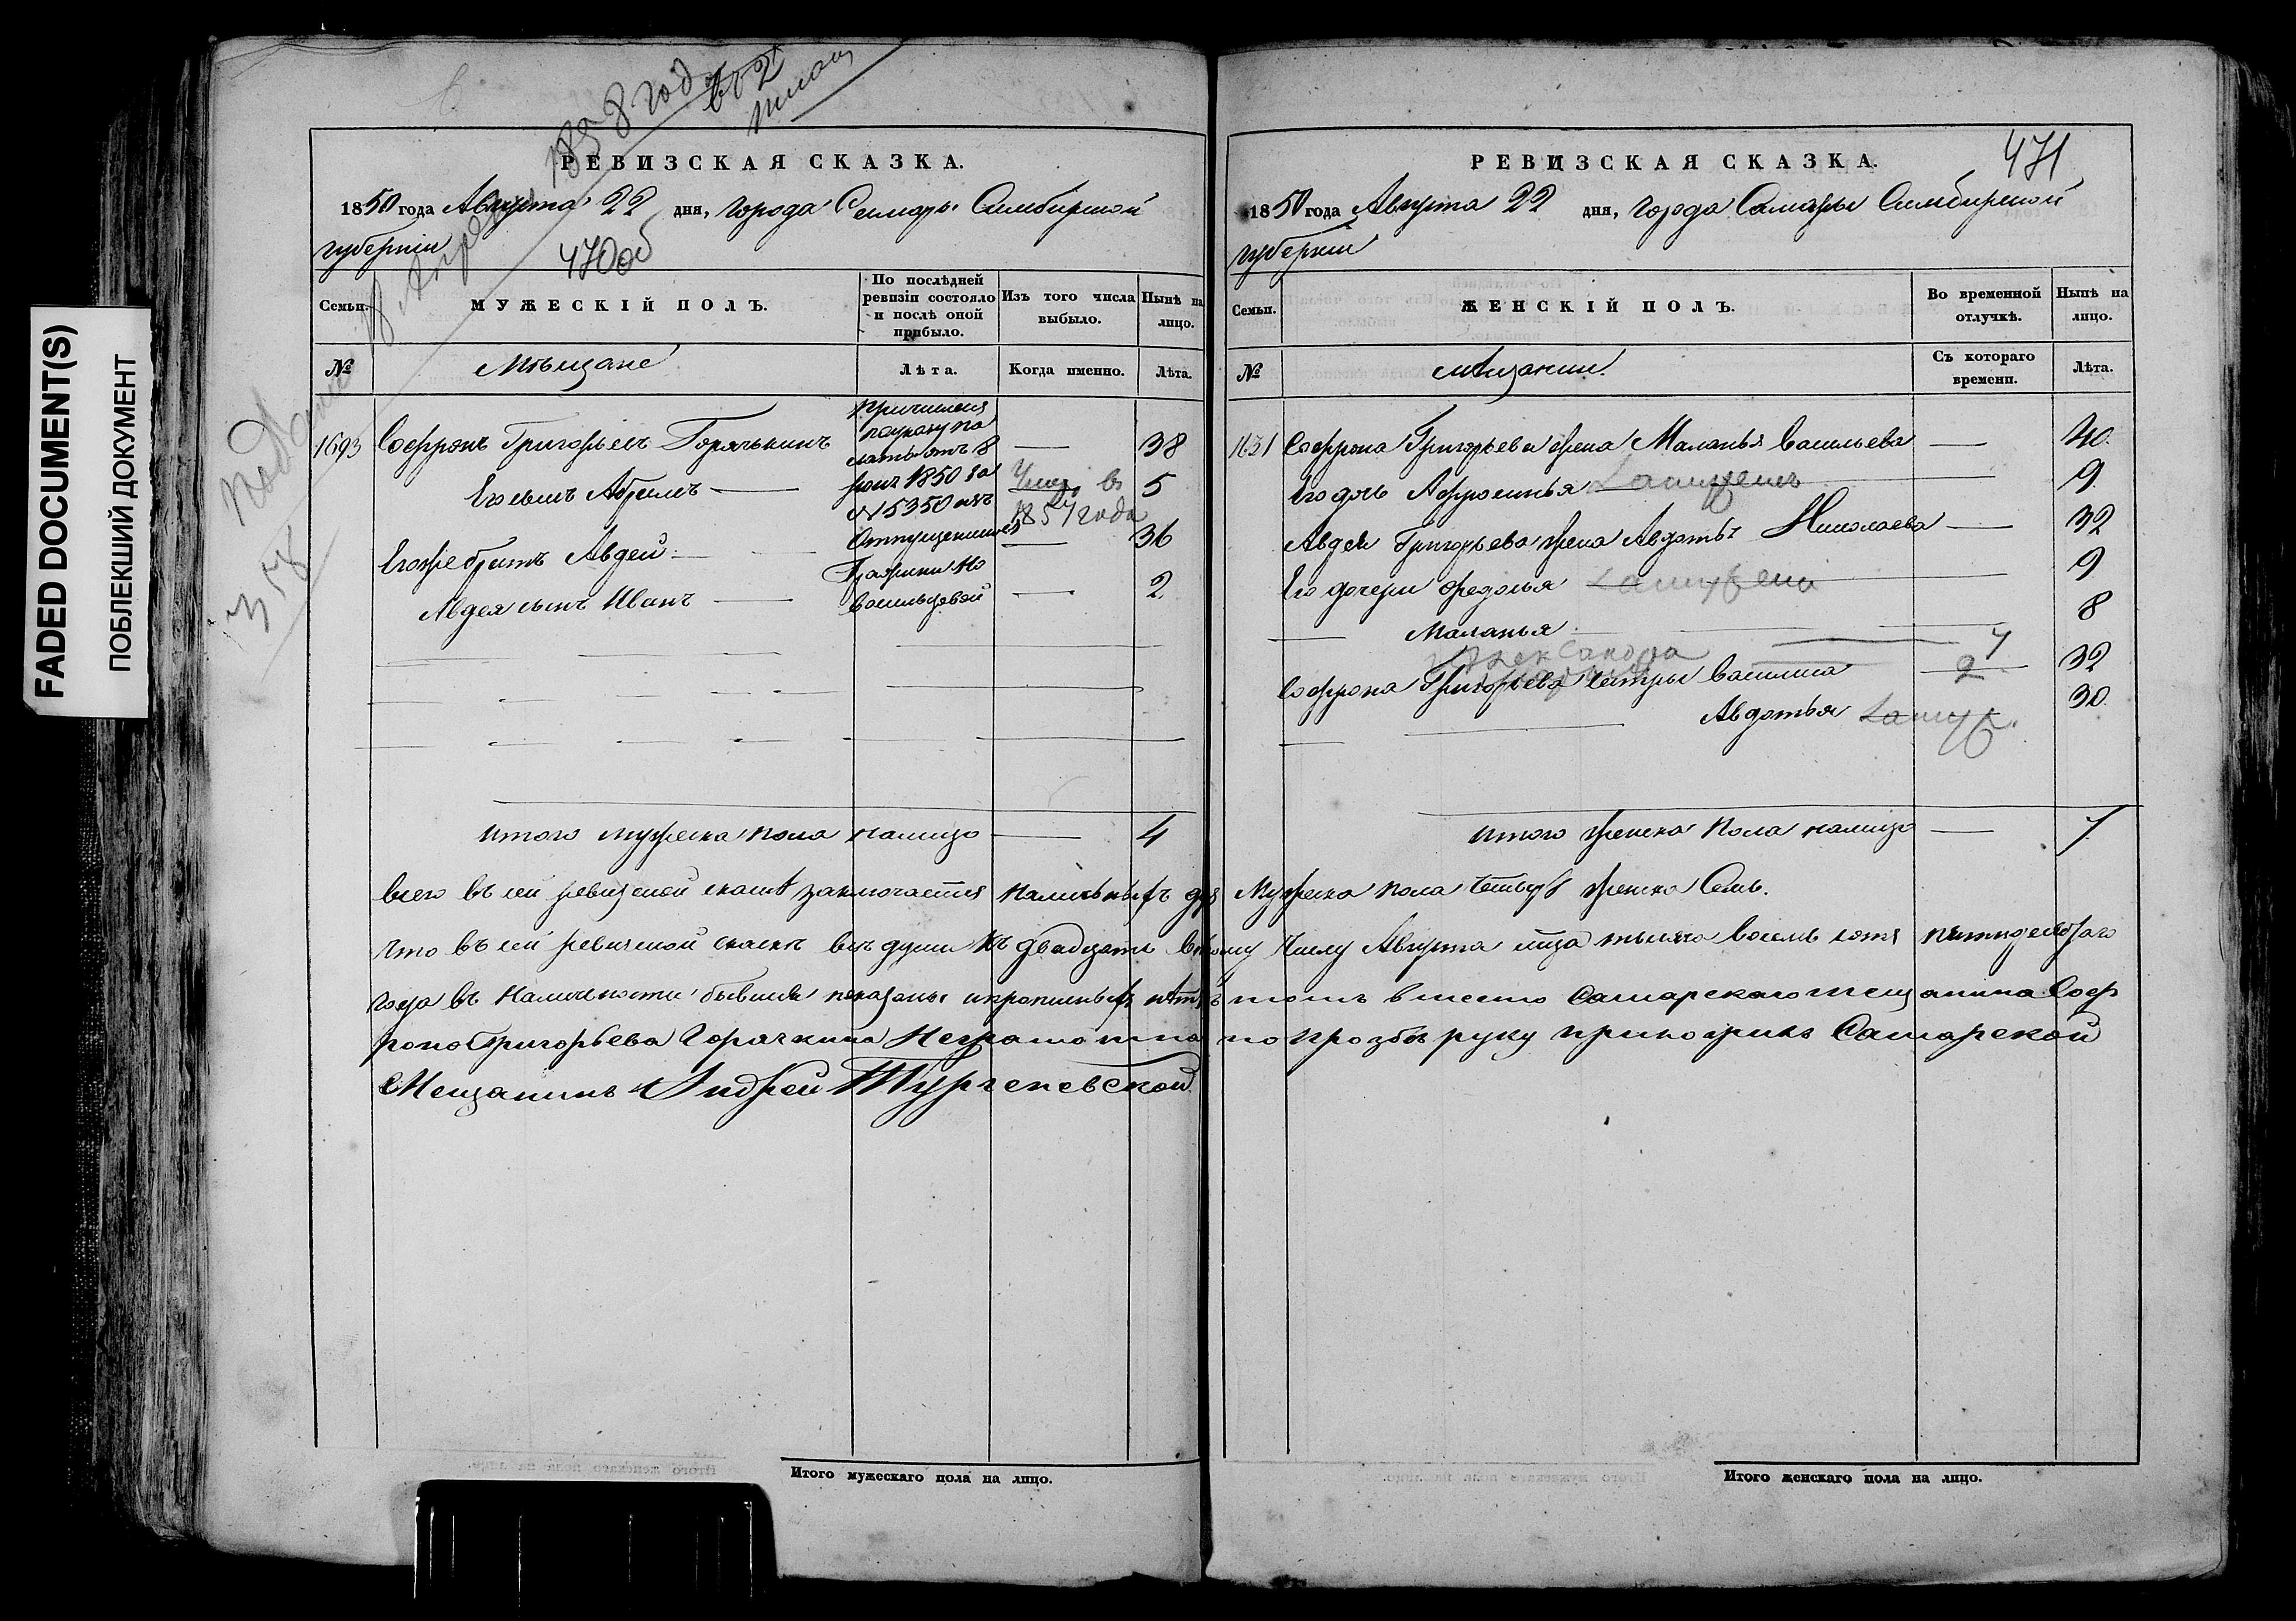 FADED DOCUMENT(S)
ПОБЛЕКШИЙ ДОКУМЕНТ
1858 год
РЕВИЗСКАЯ СКАЗКА.
1850 года Августа 22 дня, города Самары Симбирской
губернии
470 об
Семьи.
МУЖЕСКІЙ ПОЛЪ.
По послѣдней ревизіи состояло и послѣ оной прибыло.
Изъ того числа выбыло.
Нынѣ на лицо.
№
Мѣщане
Лѣта.
Когда именно.
Лѣта.
1693 Софронъ Григорьевъ Горячькинъ — 38
Его сынъ Абрамъ — 5
Его же братъ Авдей — 36
Авдея сынъ Иванъ — 2
1850 за
№ 5350 изъ
отпущенниковъ
Васильцевой
1857 года
358
итого мужеска пола налицо — 4
РЕВИЗСКАЯ СКАЗКА.
471
1850 года Августа 22 дня, города Самары Симбирской
губернии
Семьи.
ЖЕНСКІЙ ПОЛЪ.
Во временной отлучкѣ.
Нынѣ на лицо.
№
мѣщанки
Съ котораго времени.
Лѣта.
Софрона Григорьева жена Маланья Васильева — 40
Его дочь Афросинья замужемъ 9
Авдея Григорьева жена Авдотья Николаева — 32
Его дочери Федосья замужем 9
Маланья 8
Александра 7
Софрона Григорьева сестры Василиса 2 32
Авдотья замуж. 30
итого женска пола налицо — 7
всего въ сей ревизской сказкѣ заключается наличныхъ душъ Мужеска пола четыре женска Семь.
что въ сей ревизской сказкѣ всѣ души къ двадцать второму числу Августа мѣсца тысяча восемь сотъ пятидесятаго
года въ наличности бывшія показаны и прописныхъ нѣтъ въ томъ вместо Самарскаго мещанина Соф
рона Григорьева Горячкина Неграмотна по прозбѣ руку приложилъ Самарской
Мещанинъ Андрей Тургеневской
Итого мужескаго пола на лицо.
Итого женскаго пола на лицо.